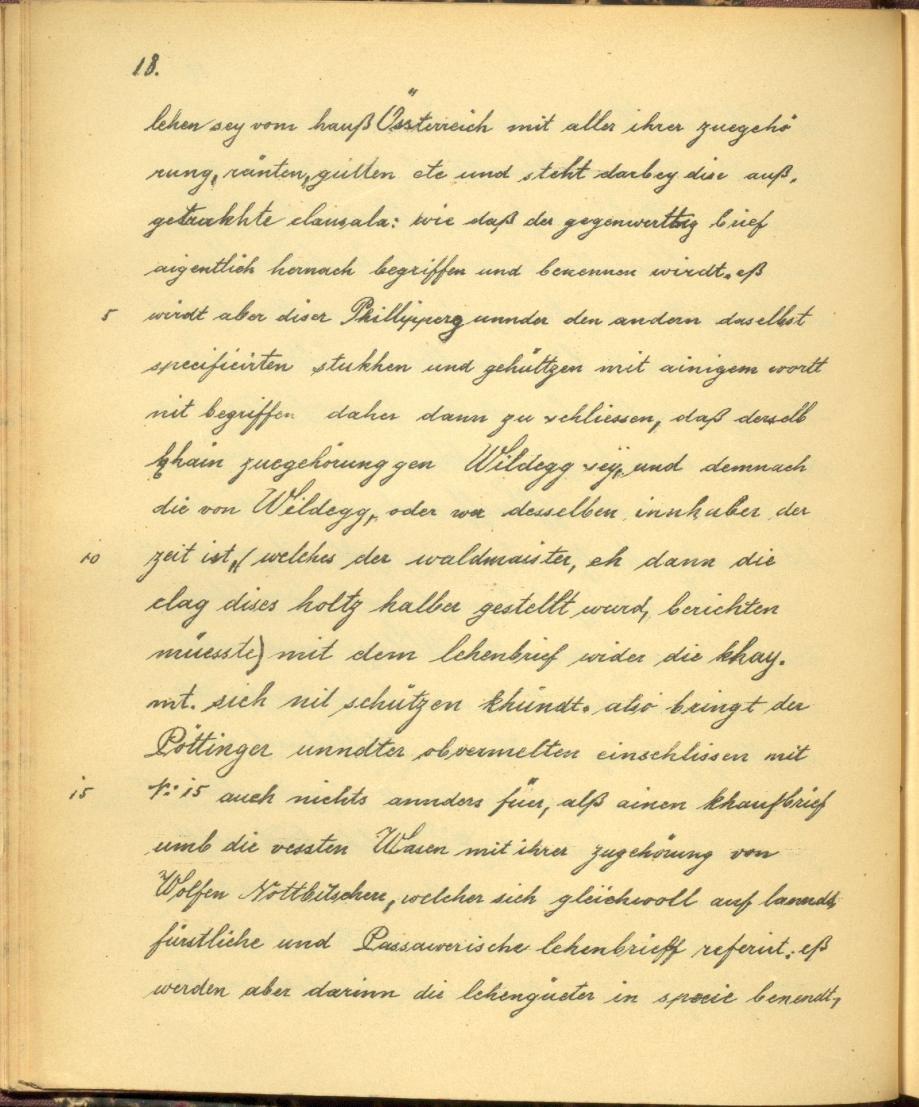 18.
lehen sey vom hauß Össterreich mit aller ihrer zuegehö
rung, ränten, gülten etc und steht darbey dise auß,
getrukhte clausala: wie daß der gegenwerttig brief
aigentlich hernach begriffen und benennen wirdt. eß
5 wirdt aber diser Phillipperg unnder den andern daselbst
specificirten stukhen und gehültzen mit ainigem wortt
nit begriffen daher dann zu schliessen, daß derselb
khain zuegehörung gen Wildegg sey, und demnach
die von Wildegg, oder wer desselben innhaber der
10 zeit ist, (welches der waldmaister, eh dann die
clag dises holtz halber gestellt wurd, berichten
müesste) mit dem lehenbrief wider die khay.
mt. sich nit schützen khündt. also bringt der
Pöttinger unndter obvermelten einschlissen mit
15 N: 15 auch nichts annders für, alß ainen khaufbrief
umb die vessten Wasen mit ihrer zugehörung von
Wolfen, welcher sich gleichwoll auf lanndts
fürstliche und Passawerische lehenbrieff referirt; eß
werden aber darinn die lehengüeter in specie benendt,